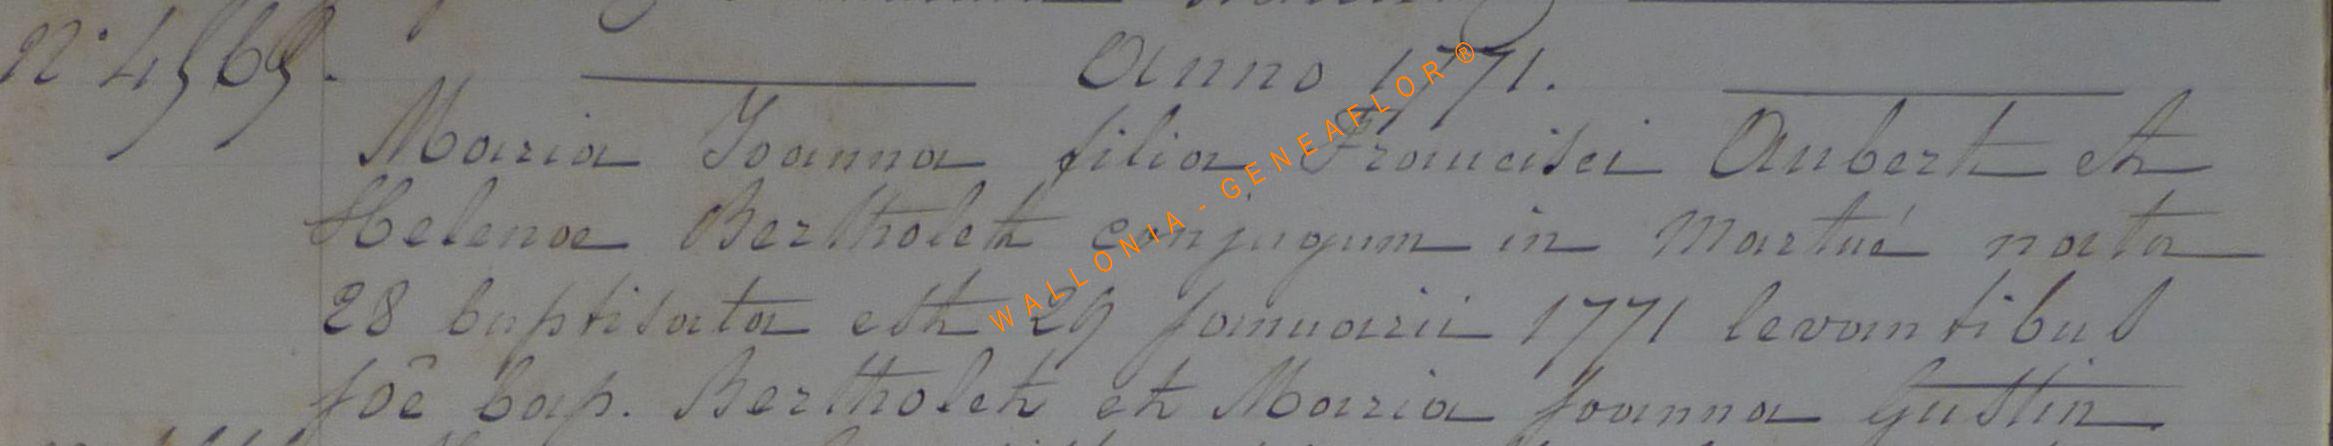 n° 4565.
Anno 1771.
Maria Joanna filia Francisci Aubert et
Helenae Bertholet conjugum in Martué nata
28 baptisata est 29 januarii 1771 levantibus
joê bap. Bertholet et Maria joanna Gustin
WALLONIA - GENEAFLOR®